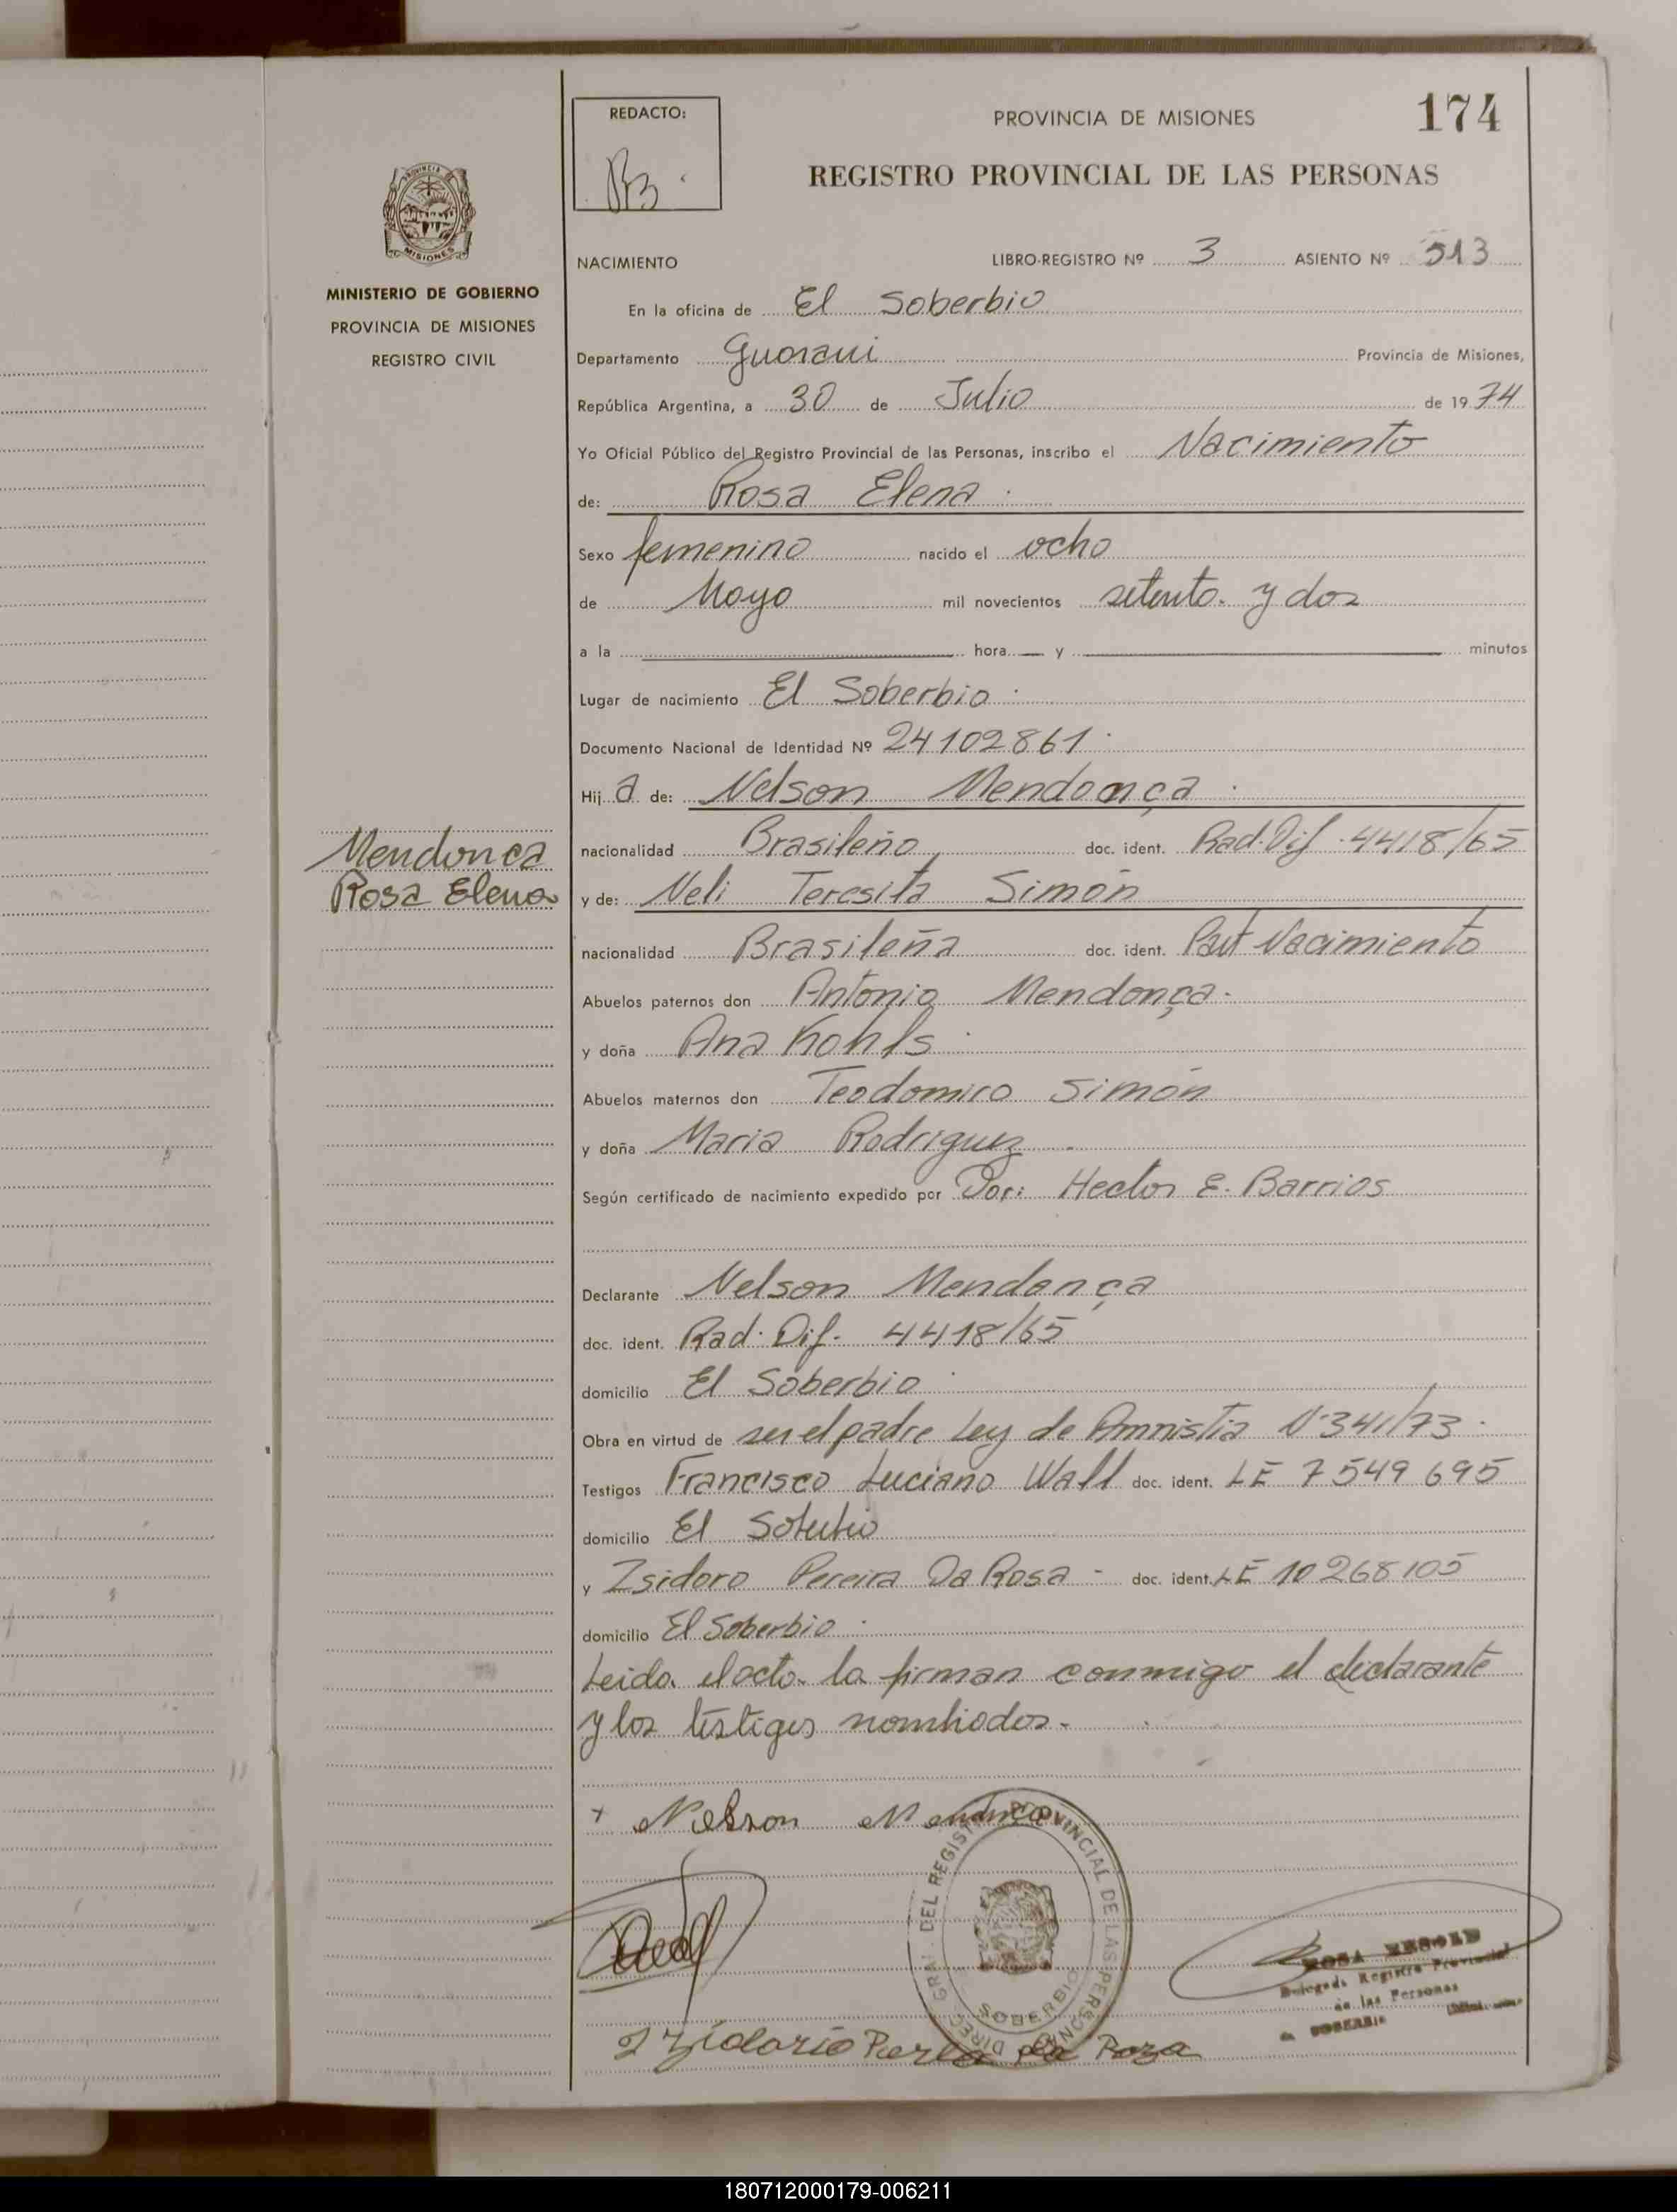 REDACTO:
PROVINCIA DE MISIONES
174
REGISTRO PROVINCIAL DE LAS PERSONAS
PROVINCIA DE
MISIONES
MINISTERIO DE GOBIERNO
PROVINCIA DE MISIONES
REGISTRO CIVIL
NACIMIENTO LIBRO-REGISTRO Nº 3 ASIENTO Nº 513
En la oficina de El Soberbio
Departamento Guarani Provincia de Misiones,
República Argentina, a 30 de Julio de 1974
Yo Oficial Público del Registro Provincial de las Personas, inscribo el Nacimiento
de: Rosa Elena
Sexo femenino nacido el ocho
de Mayo mil novecientos setenta y dos
a la hora y minutos
Lugar de nacimiento El Soberbio
Documento Nacional de Identidad Nº 24102861
Hija de: Nelson Mendonça
nacionalidad Brasileño, doc. ident. Rad. Dif. 4418/65
Mendonca
Rosa Elena
y de: Neli Teresita Simón
nacionalidad Brasileña doc. ident. Part Nacimiento
Abuelos paternos don Antonio Mendonça
y doña Ana Kohls
Abuelos maternos don Teodomiro Simón
y doña Maria Rodriguez
Según certificado de nacimiento expedido por Por: Hector E. Barrios
Declarante Nelson Mendonça
doc. ident. Rad. Dif. 4418/65
domicilio El Soberbio
Obra en virtud de ser el padre Ley de Amnistia Nº 341/73
Testigos Francisco Luciano Wall doc. ident. LE 7549695
domicilio El Soberbio
y Isidoro Pereira Da Rosa - doc. ident. LE 10268105
domicilio El Soberbio
Leida el acta la firman conmigo el declarante
y los testigos nombrados.
+ Nelson Mendonca
DIREC. GRAL. DEL REGISTRO PROVINCIAL DE LAS PERSONAS
SOBERBIO
ROSA
Delegada Registro Provincial
de las Personas
SOBERBIO
Da Roza
180712000179-006211